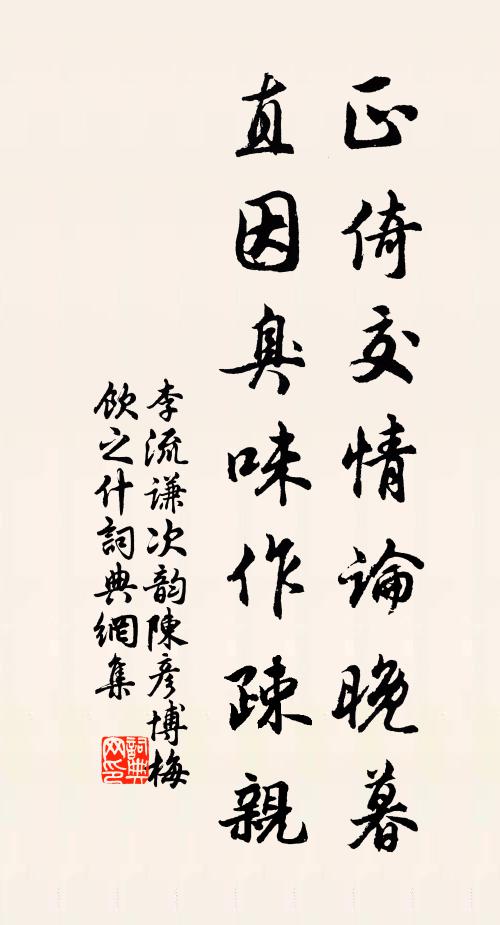 正倚交情論晚暮
直因臭味作疎親
李流謙次韵陳彥博梅
飲之什詞典網集
詞典
网印